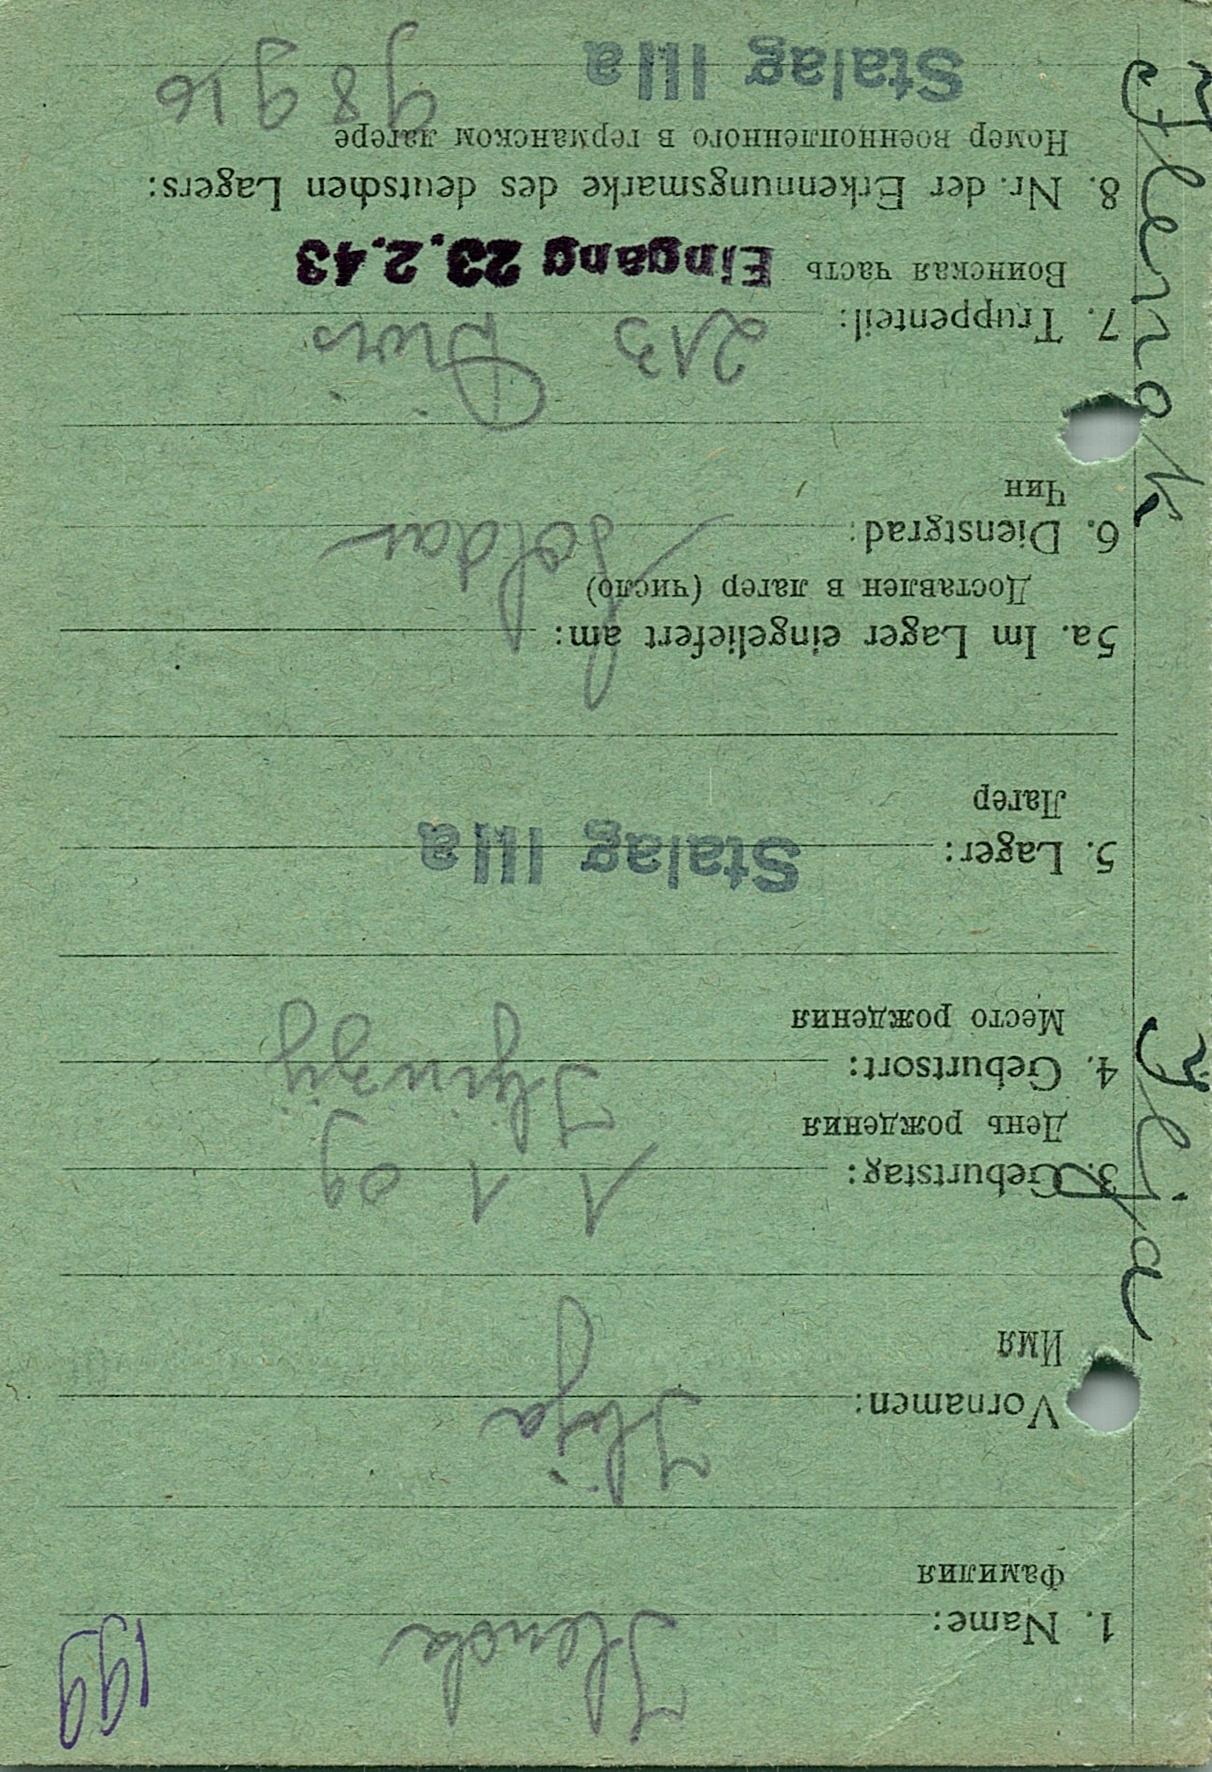 1. Name: Jlenda
Фамилия
Vornamen: Ilija
Имя
3. Geburtstag: 1 1 09
День рождения
4. Geburtsort:
Место рождения
5. Lager: Stalag IIIa
Лагер
5a. Im Lager eingeliefert am:
Доставлен в лагер (число)
6. Dienstgrad: Soldat
Чин
7. Truppenteil: 213 Divis
Воинская часть Eingang 23.2.43
8. Nr. der Erkennungsmarke des deutschen Lagers:
Номер военнопленного в германском лагере
Stalag IIIa 98916